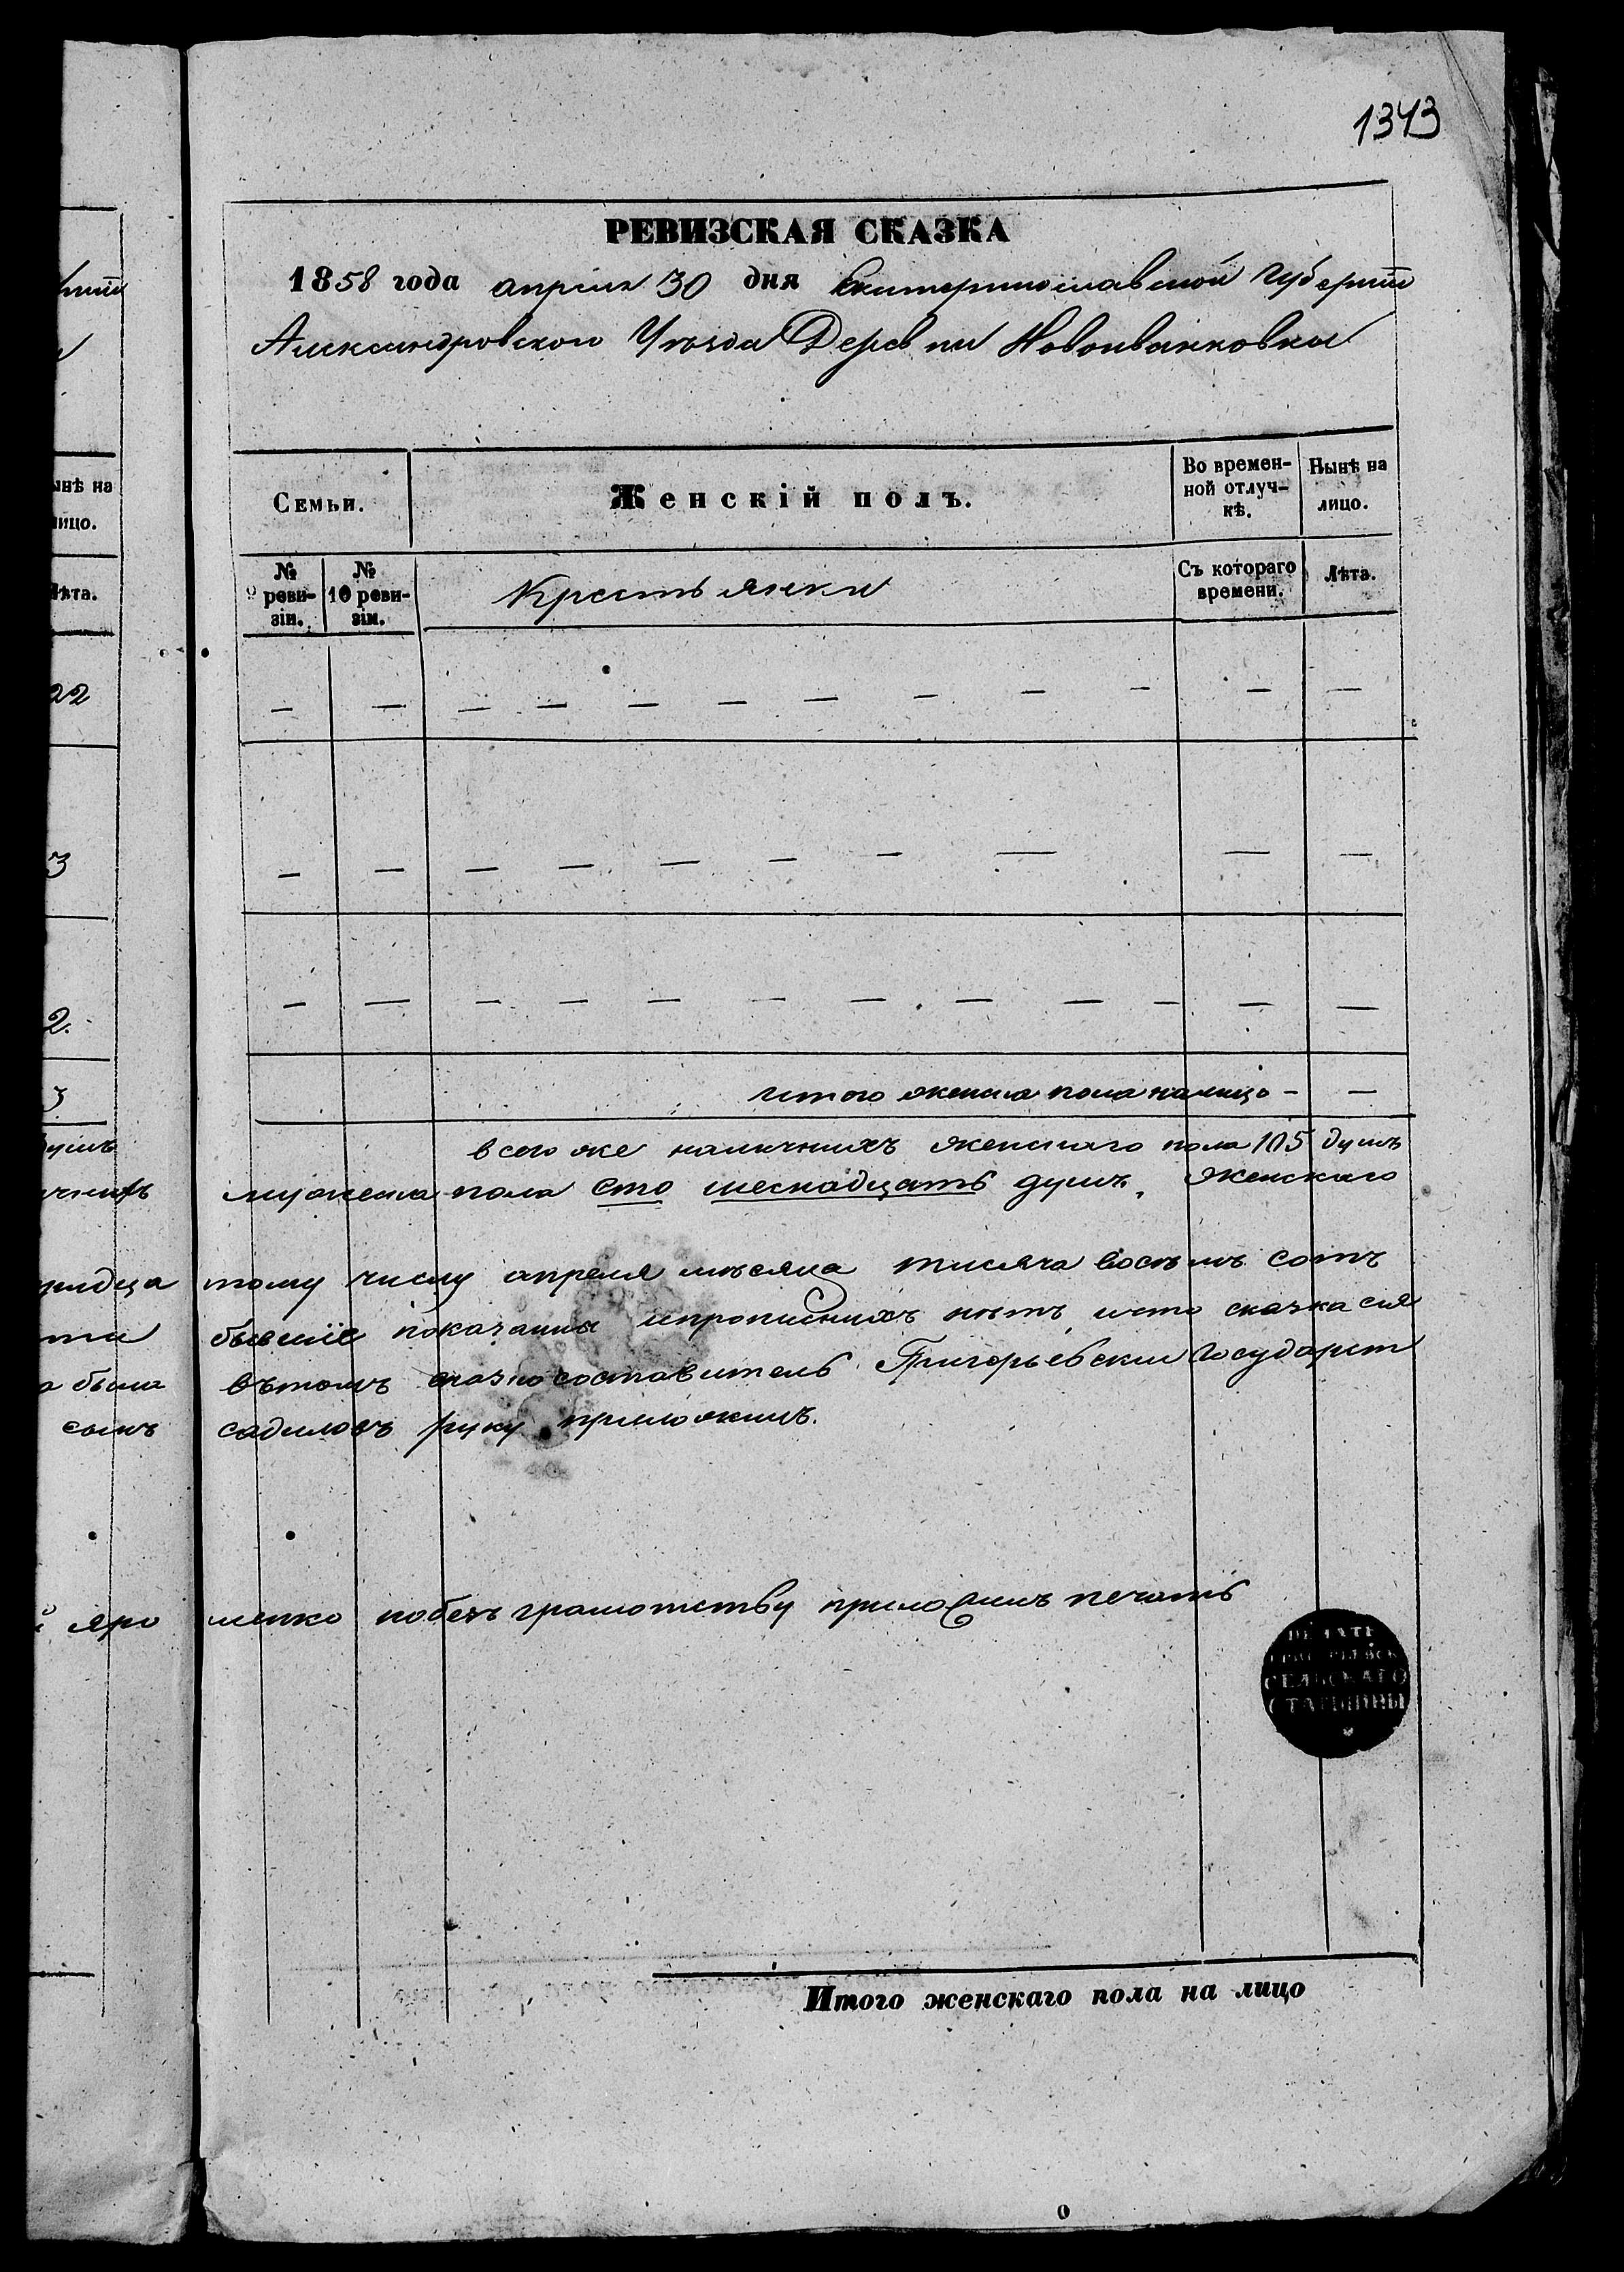 1343
РЕВИЗСКАЯ СКАЗКА
1858 года апреля 30 дня Екатеринославской Губерніи
Александровского Уѣзда Деревни Новоиванковки
Семьи.
Женскій полъ.
Во времен-
ной отлуч-
кѣ.
Нынѣ на
лицо.
№
9 реви-
зіи.
№
10 реви-
зіи.
Крестьянки
Съ котораго
времени.
Лѣта.
— — — — — — — — — — — —
— — — — — — — — — —
— — — — — — — — — — — —
итого женска пола налицо - —
всего же наличнихъ женскаго пола 105 душъ
мужеска пола сто шеснадцать душъ, женскаго
тому числу апреля мѣсяца тисяча восѣмъ сотъ
бывшіе показаны ипрописнихъ нѣтъ, ичто сказка сия
вътомъ сказкосоставитель Григорьевски Государст
садиловъ руку приложилъ.
менко побезъ грамотству приложилъ печать
ПЕЧАТЬ
ГРИГОРЬЕВСК
СЕЛЬСКАГО
СТАРШИНЫ
Итого женскаго пола на лицо
ынѣ на
лицо.
Лѣта.
22
3
2.
3
душъ
была
сынъ
яро